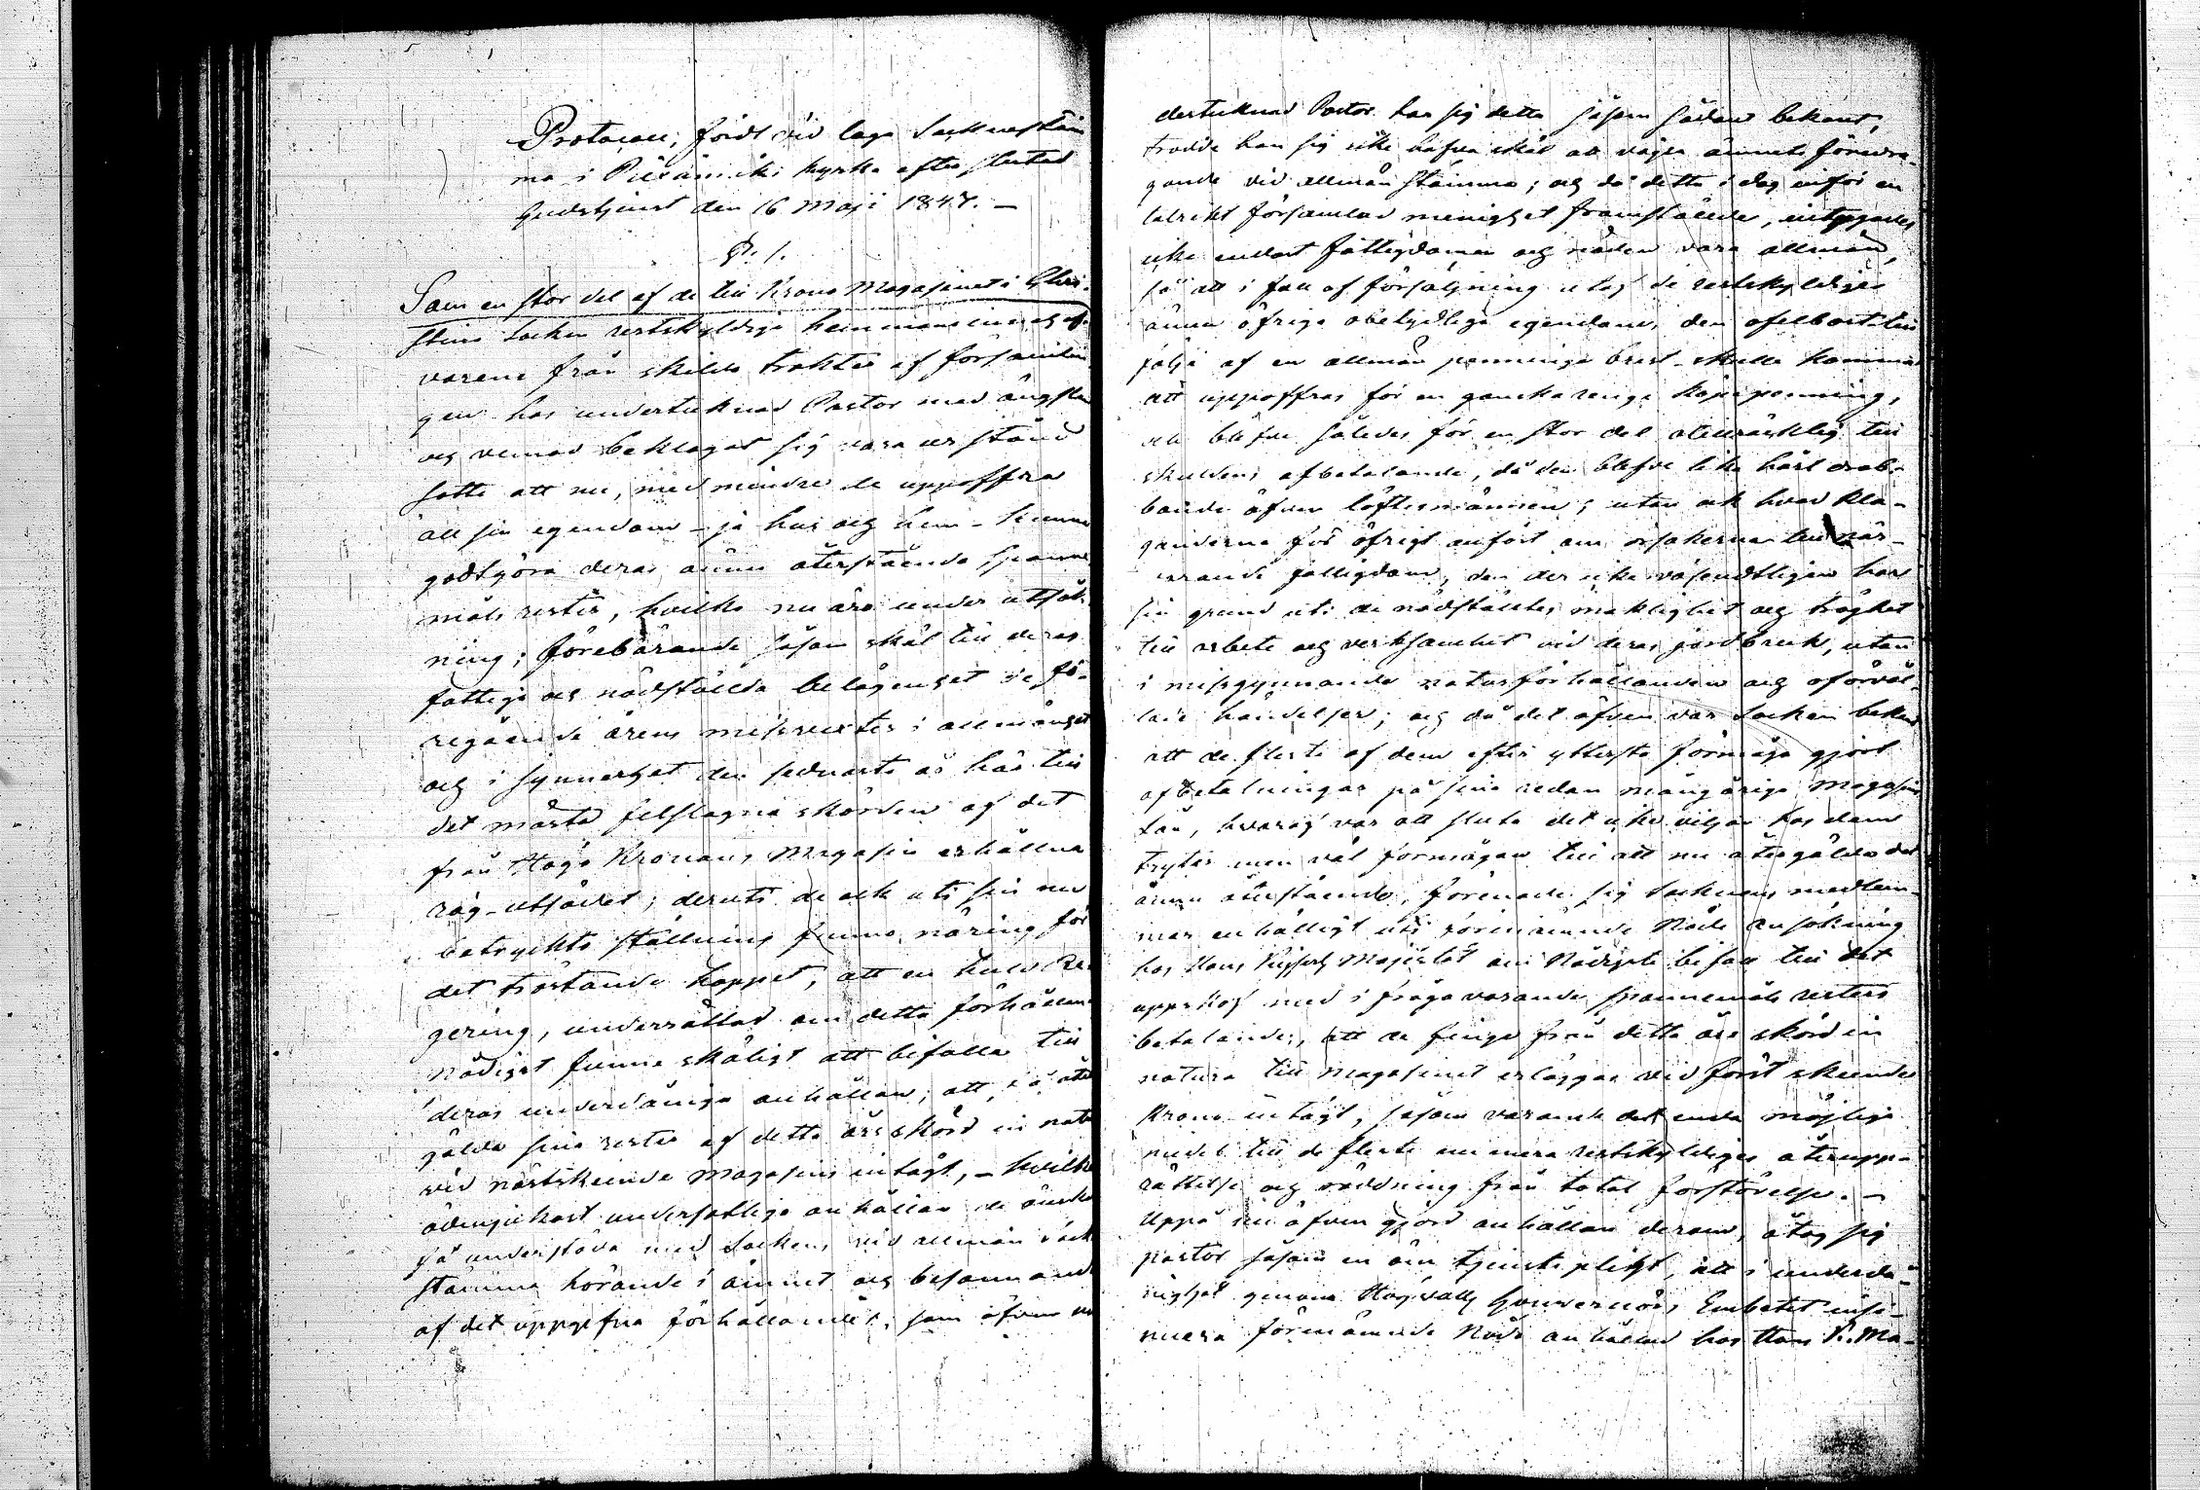 Protocoll, fördt vid laga Socknestäm
ma i Pielisjärvi kyrka efter slutad
Gudstjenst den 16 Maji 1847. —
§. 1.
Som en stor del af de till Krono Magasinet i
socken restskyldige hemmansinnehaf-
varene från skilda trakter af församlin
gen hos undertecknad Pastor med ängslan
och vemod beklagat sig vara ur stånd
satte att nu, med mindre de uppoffra
all sin egendom – ja hus och hem – kunna
godtgöra deras ännu återstående spanne
måls rester, hvilka nu äro under utsök-
ning; förebärande såsom skäl till deras
fattiga och nödstälda belägenhet de fö-
regående årens missvexter i allmänhet
och i synnerhet den sednaste år här till
det mästa felslagna skörden af det
från Höga Kronans Magasin erhållna
råg-utsädet; deruti de ock uti sin nu
betryckta ställning funno näring för
det tröstande hoppet, att en huld Re-
gering, underrättad om detta förhållan
nådigst funne skäligt att bifalla till
deras underdåniga anhållan, att få åter
gälda sina rester af detta års skörd in natu
vid nästskeende magasins intägt, – hvilken
ödmjukast undersåtliga anhållan de önska
få understöda med Sockens vid allmän sock
stämma hörande i ämnet och besannande
af det uppgifna förhållandet, som äfven
dertecknad Pastor har sig detta såsom sådant bekant,
trodde han sig icke hafva skäl att vägra ämnets föredra-
gande vid allmän stämma; och då detta i dag inför en
talrikt församlad menighet framstäldes, intygades
icke endast fattigdomen och nöden vara allmän,
så att i fall af försäljning utaf de restskyldiges
ännu öfriga obetydliga egendom, den ofelbart till
följe af en allmän penninge brist – skulle komma
att uppoffras för en ganska ringa köpe penning,
och blefve således för en stor del otillräcklig till
skuldens afbetalande, då den blefve lika hårt drab-
bande äfven löftesmännen; utan ock hvad kla-
ganderne för öfrigt anfört om orsakerna till när-
varande fattigdom, den der icke väsendtligen har
sin grund uti de nödstäldes maklighet och tröghet
till arbete och verksamhet vid deras jordbruk, utan
i missgynnande naturförhållanden och oförvål-
lade händelser; och då det äfven var Socken bekant
att de fleste af dem efter yttersta förmåga gjort
afbetalningar på sina redan mångåriga magasins
lån, hvaraf var att sluta det icke viljan hos dem
tryter men väl förmågan till att nu återgälda det
ännu återstående, förenade sig Socknens medlem-
mar enhälligt uti förenämnde Nåde ansökning
hos Hans Kejserl. Majestät om Nådigste bifall till det
uppskof med i fråga varande spannemåls resters
betalande, att de finge från detta års skörd in
natura till Magasinet erläggas vid först skeende
Krono intägt, såsom varande det enda möjliga
medel till de fleste nu mera restskyldiges återupp-
rättelse och räddning från total förstörelse. —
Uppå nu äfven gjord anhållan derom, åtog sig
pastor såsom en öm tjenste pligt, att i underdå-
nighet genom Högvälb. Gouvernörs Embetet insi-
nuera förenämnde Nåde anhållan hos Hans K. Ma-